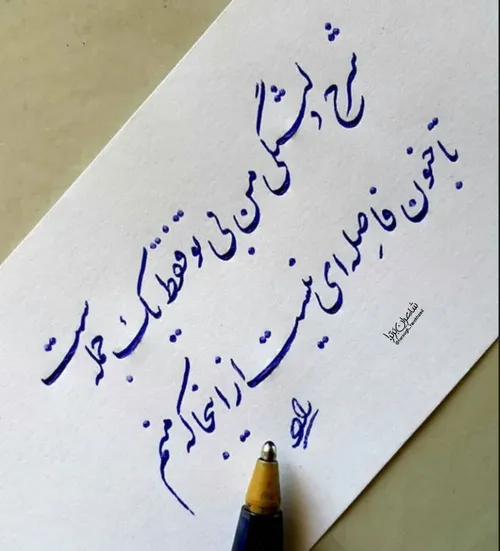 شرح دلتنگی من بی تو فقط یک جمله ست
تا جنون فاصله ای نیست از اینجا که منم